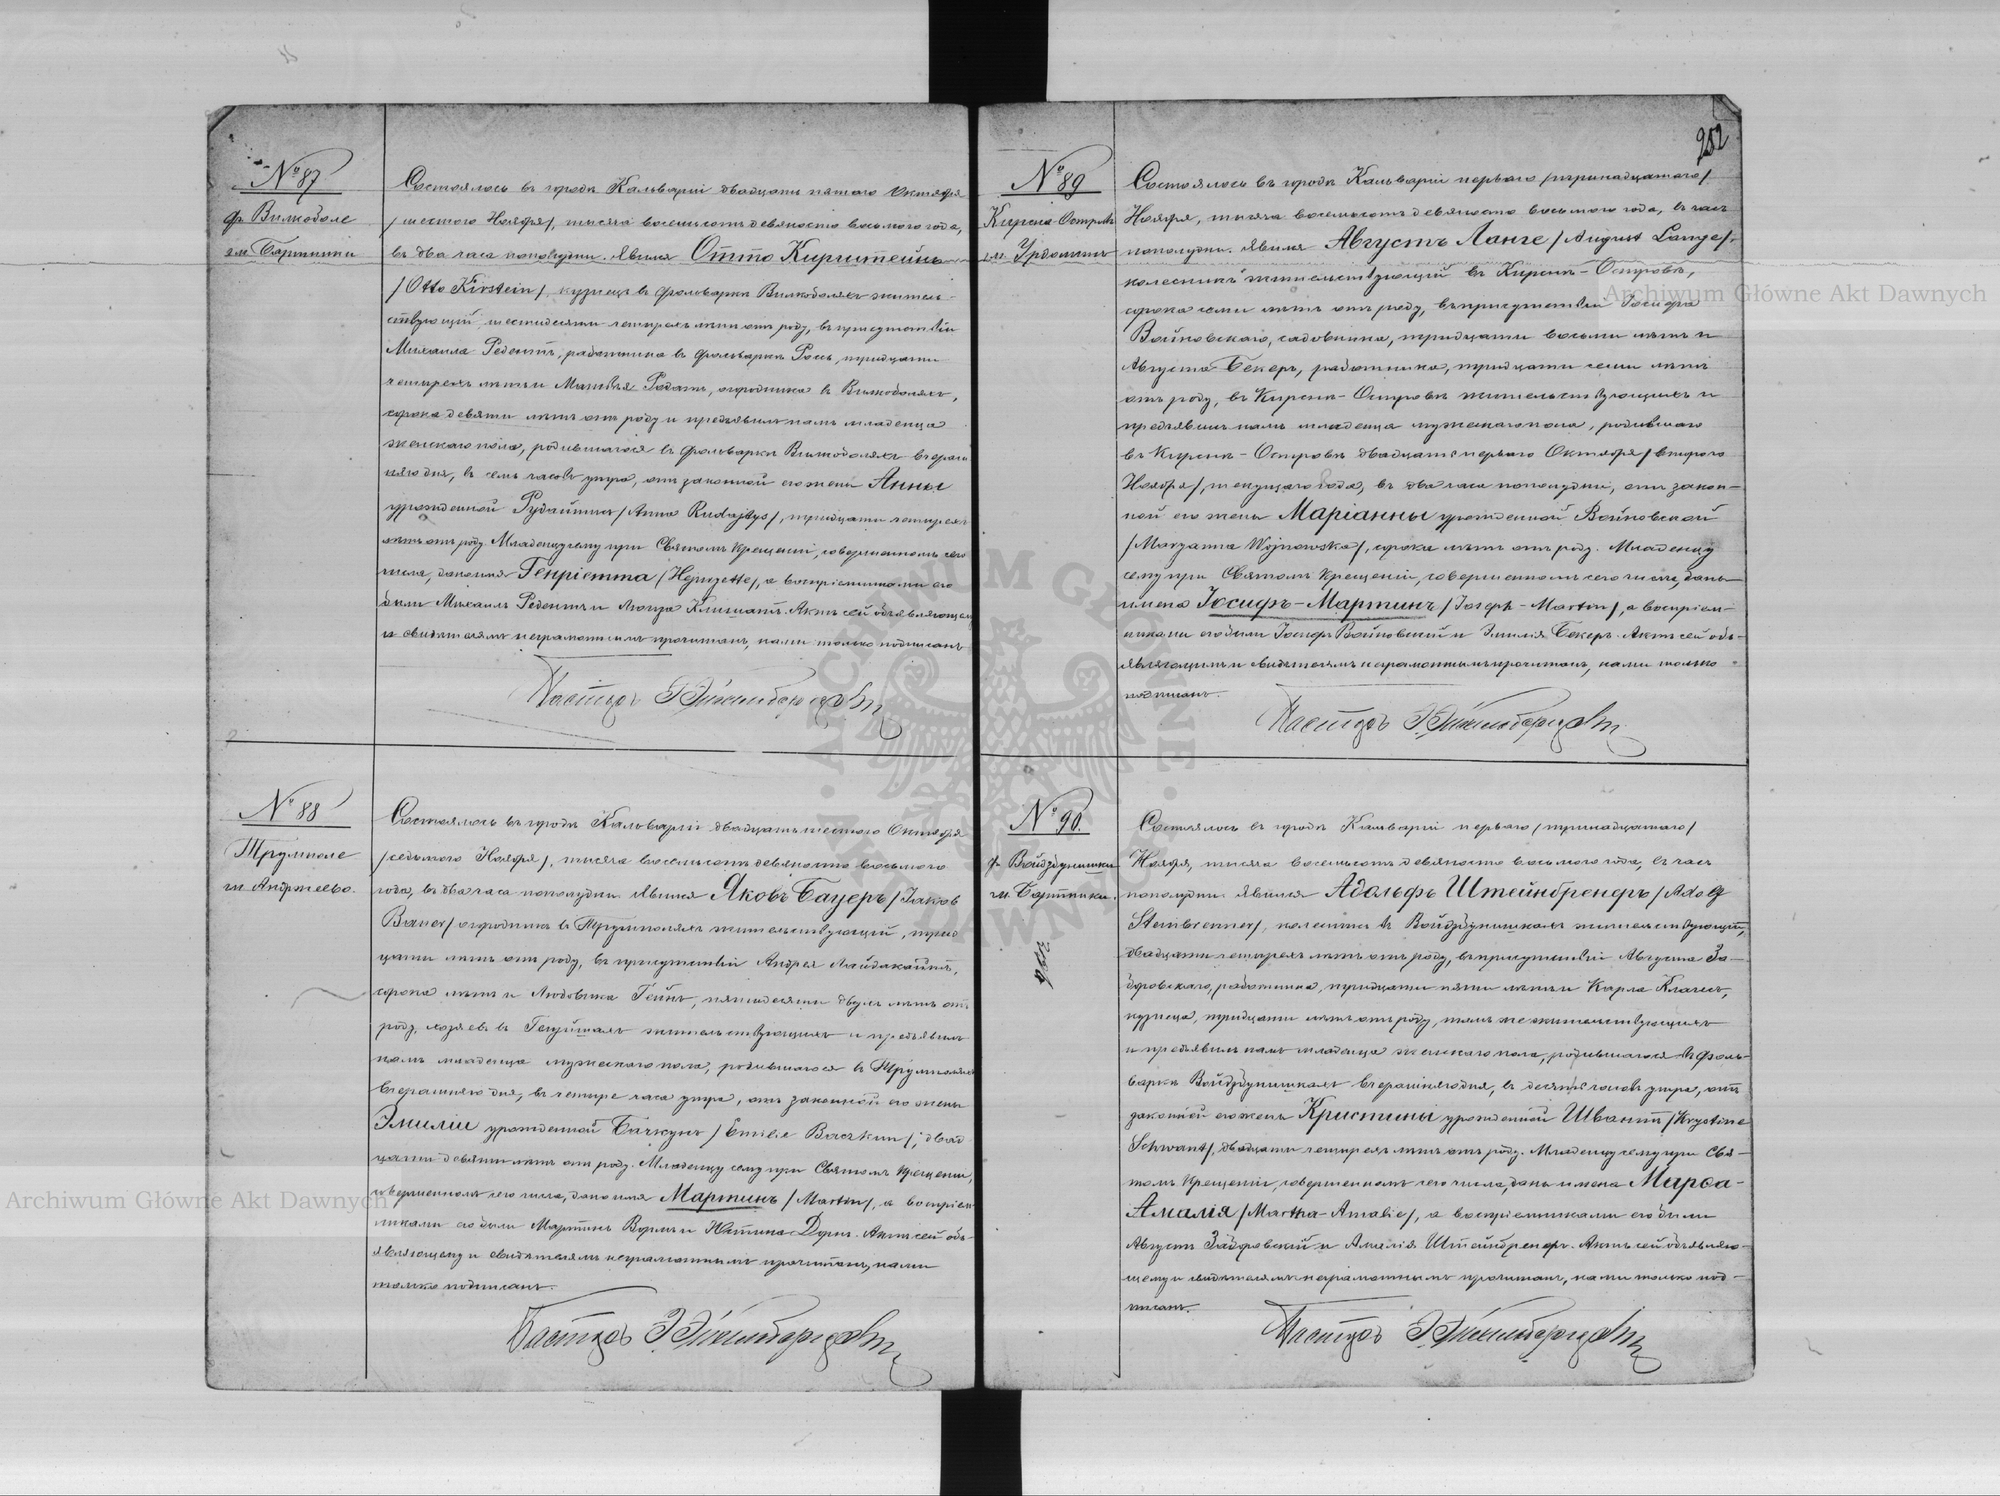 № 87
ф. Вилкоболе
гм. Бартники
Состоялось въ городѣ Кальваріи двадцать пятаго Октября
/шестого Ноября/, тысяча восемьсотъ девяносто восьмого года,
въ два часа пополудни. Явился Отто Кирштейнъ
/Otto Kirstein/, кузнецъ въ фольваркѣ Вилкоболяхъ житель-
ствующій, шестидесяти четырехъ лѣтъ отъ роду, въ присутствіи
Михаила Редентъ, работника въ фольваркѣ Рось, тридцати
четырехъ лѣтъ и Матвѣя Радатъ, огородника въ Вилкоболяхъ,
сорока девяти лѣтъ отъ роду и предъявилъ намъ младенца
женскаго пола, родившагося въ фольваркѣ Вилкоболяхъ вчераш
няго дня, въ семь часовъ утра, отъ законной его жены Анны
урожденной Рудайтисъ /Anna Rudajtys/, тридцати четырехъ
лѣтъ отъ роду. Младенцу сему при Святомъ Крещеніи, совершенномъ сего
числа, дано имя Генріетта /Henryette/, а воспріемниками его
были Михаилъ Редентъ и Луиза Климатъ. Актъ сей объявляющему
и свидѣтелямъ неграмотнымъ прочитанъ, нами только подписанъ
Пасторъ
№ 88
Трумполе
гм. Андржеево.
Состоялось въ городѣ Кальваріи двадцать шестого Октября
/седьмого Ноября/, тысяча восемьсотъ девяносто восьмого
года, въ два часа пополудни. Явился Яковъ Бауеръ /Jakob
Bauer/ огородникъ въ Трумполяхъ жительствующій, трид
цати лѣтъ отъ роду, въ присутствіи Андрея
сорока лѣтъ и Людовика Гейнъ, пятидесяти двухъ лѣтъ отъ
роду, хозяевъ въ жительствующихъ и предъявилъ
намъ младенца мужескаго пола, родившагося въ Трумполяхъ
вчерашняго дня, въ четыре часа утра, отъ законной его жены
Эмиліи урожденной Бачкунъ /Emilie Baczkun/, двад
цати девяти лѣтъ отъ роду. Младенцу сему при Святомъ Крещеніи,
совершенномъ сего числа, дано имя Мартинъ /Martin/, а воспріем
никами его были Мартинъ и Юстина Дорнъ. Актъ сей объ-
являющему и свидѣтелямъ неграмотнымъ прочитанъ, нами
только подписанъ.
Пасторъ
202
№ 89
Кирсна-Островъ
гм. Урдоминъ
Состоялось въ городѣ Кальваріи перваго /тринадцатаго/
Ноября, тысяча восемьсотъ девяносто восьмого года, въ часъ
пополудни. Явился Августъ Ланге /August Lange/,
колесникъ жительствующій въ Кирснѣ-Островѣ,
сорока семи лѣтъ отъ роду, въ присутствіи Іосифа
Войновскаго, садовника, тридцати восьми лѣтъ и
Августа Бекеръ, работника, тридцати семи лѣтъ
отъ роду, въ Кирснѣ-Островѣ жительствующихъ и
предъявилъ намъ младенца мужескаго пола, родившаго
въ Кирснѣ-Островѣ двадцать перваго Октября /второго
Ноября/, текущаго года, въ два часа пополудни, отъ закон-
ной его жены Маріанны урожденной Войновской
/Maryanna Wojnowska/, сорока лѣтъ отъ роду. Младенцу
сему при Святомъ Крещеніи, совершенномъ сего числа, даны
имена Іосифъ-Мартинъ /Joseph-Martin/, а воспріем-
никами его были Іосифъ Войновскій и Эмилія Бекеръ. Актъ сей объ-
являющему и свидѣтелямъ неграмотнымъ прочитанъ, нами только
подписанъ.
Пасторъ
№ 90.
ф. Войздзунишки
гм. Бартники.
Состоялось въ городѣ Кальваріи перваго /тринадцатаго/
Ноября, тысяча восемьсотъ девяносто восьмого года, въ часъ
пополудни. Явился Адольфъ Штейнбренеръ /Adolf
Steinbrenner/, колесникъ въ Войздзунишкахъ жительствующій,
двадцати четырехъ лѣтъ отъ роду, въ присутствіи Августа За-
работника, тридцати пяти лѣтъ и Карла
кузнеца, тридцати лѣтъ отъ роду, тамъ же жительствующихъ
и предъявилъ намъ младенца женскаго пола, родившагося въ фоль-
варкѣ Войздзунишкахъ вчерашняго дня, въ десять часовъ утра, отъ
законной его жены Кристины урожденной Швантъ /Krystine
Schwant/, двадцати четырехъ лѣтъ отъ роду. Младенцу сему при Свя-
томъ Крещеніи, совершенномъ сего числа, даны имена Марѳа-
Амалія /Martha-Amalie/, а воспріемниками его были
Августъ и Амалія Штейнбренеръ. Актъ сей объявляю-
щему и свидѣтелямъ неграмотнымъ прочитанъ, нами только под-
писанъ.
Пасторъ
Archiwum Główne Akt Dawnych
Archiwum Główne Akt Dawnych